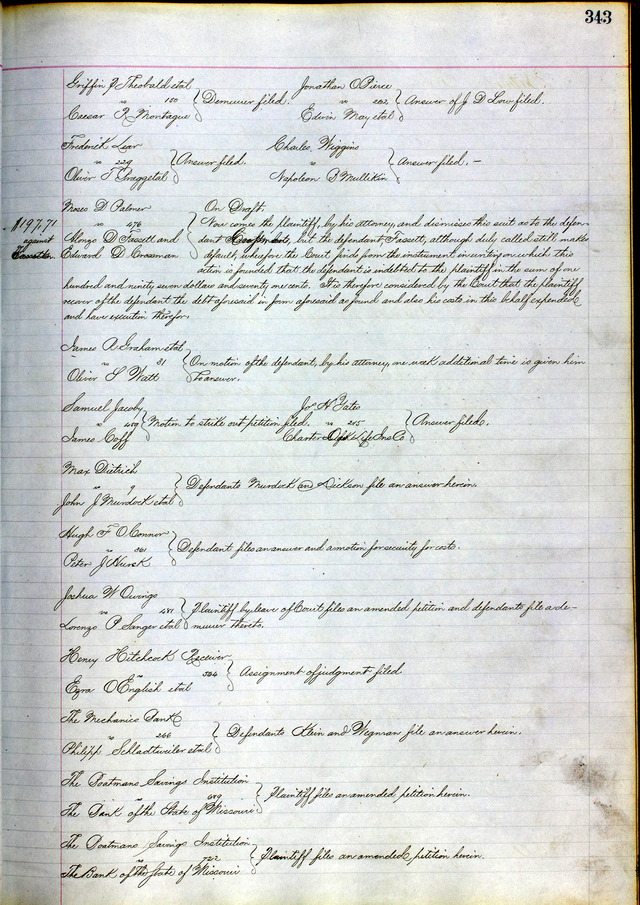 343
Griffin P Theobald etal
vs 150
Caesar R Montague
Demurrer filed.
Jonathan O Pierce
vs 202
Edwin May etal
Answer of J D Low filed.
Frederick Lear
vs 229
Oliver T
Answer filed.
Charles Wiggins
vs
Napoleon B Mullikin
Answer filed. —
$197.71
against
Moses D Palmer
vs 476
Alonzo D Fassett and
Edward D Crossman
On Draft.
Now comes the plaintiff, by his attorney, and dismisses this suit as to the defen-
dant but the defendant, Fassett, although duly called still makes
default, wherefore the Court finds from the instrument in writing on which this
action is founded that the defendant is indebted to the plaintiff in the sum of one
hundred and ninety seven dollars and seventy one cents. It is therefore considered by the Court that the plaintiff
recover of the defendant the debt aforesaid in form aforesaid as found and also his costs in this behalf expended
and have execution therefor.
James A Graham etal
vs 31
Oliver S Watt
On motion of the defendant, by his attorney, one week additional time is given him
to answer.
Samuel Jacoby
vs 489
James Goff
Motion to strike out petition filed.
Jos H Yates
vs 215
Charter Oak Life Ins Co
Answer filed.
Max Dietrich
vs 9
John J Murdock etal
Defendants Murdock and Dickson file an answer herein.
Hugh F O'Connor
vs 361
Peter J Hurck
Defendant files an answer and a motion for security for costs.
Joshua W Owings
vs 481
Lorenzo P Sanger etal
Plaintiff by leave of Court files an amended petition and defendants file a de-
murrer thereto.
Henry Hitchcock Receiver
vs 534
Ezra O English etal
Assignment of judgment filed
The Mechanics Bank
vs 266
Philipp Schladtweiler etal
Defendants Klein and Wegman file an answer herein.
The Boatmans Savings Institution
vs 679
The Bank of the State of Missouri
Plaintiff files an amended petition herein.
The Boatmans Savings Institution
vs 722
The Bank of the State of Missouri
Plaintiff files an amended petition herein.